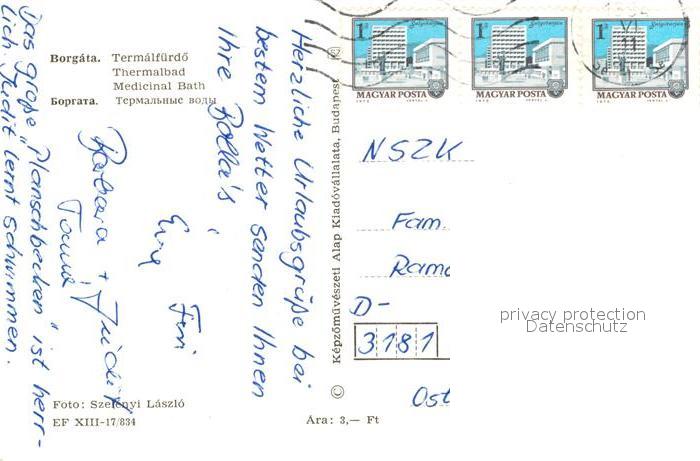 Borgáta. Termálfürdő
Thermalbad
Medicinal Bath
Боргата. Термальные воды
Herzliche Urlaubsgrüße bei
bestem Wetter senden Ihnen
Ihre
Barbara +
Judit
Das große "Planschbecken" ist herr-
lich, Judit lernt schwimmen.
Foto: Szelényi László
EF XIII-17/834
Ára: 3,— Ft
© Képzőművészeti Alap Kiadóvállalata, Budapest
1 Ft
MAGYAR POSTA
1 Ft
MAGYAR POSTA
1 Ft
MAGYAR POSTA
VI
11
NSZK
Fam.
D-
3181
Ost
privacy protection
Datenschutz